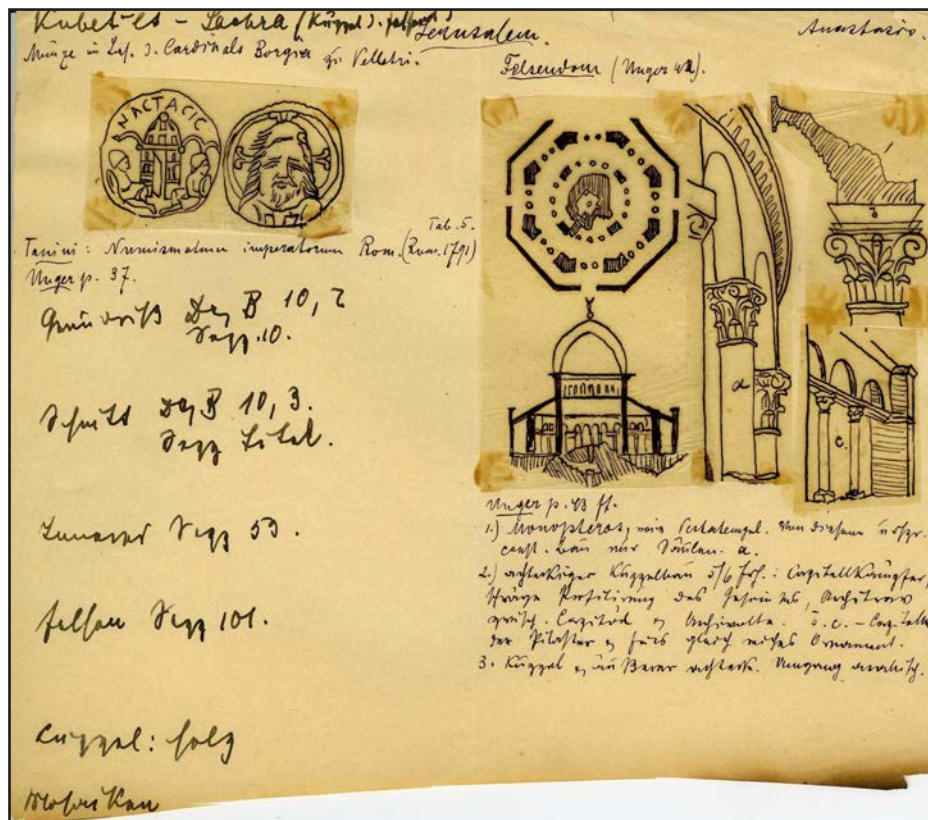 Kubet-es-Sachra (Kuppel d. Felsens)
Jerusalem.
Anastasis.
Münze in Bes. d. Cardinals Borgia zu Velletri.
Felsendom (Unger 42).
NACTACIC
Tanini: Numismatum imperatorum Rom. (Rom. 1791) Tab. 5.
Unger p. 37.
Grundriß De, B 10, 2
Sepp. 10.
Schnitt De, B 10, 3.
Sepp Titel.
Inneres Sepp 53.
Felsen Sepp 101.
Kuppel: Holz
Mosaiken
a
b
c.
Unger p. 43 ff.
1.) Monopteros, wie Vestatempel. Von diesem urspr.
const. Bau nur Säulen. a.
2.) achteckiger Kuppelbau 5/6 Jhh.: Capitellkämpfer,
schräge Profilirung des Gesimses, Architrav
zwisch. Capitäl u Archivolte. b. c. - Capitelle
der Pilaster u Fries gleich reiches Ornament.
3. Kuppel u äußerer achteck. Umgang arabisch.